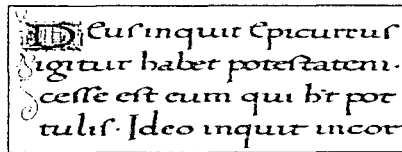 Deus inquit Epicurus
igitur habet potestatem.
cesse est eum qui h't pot
tulis. Ideo inquit incor